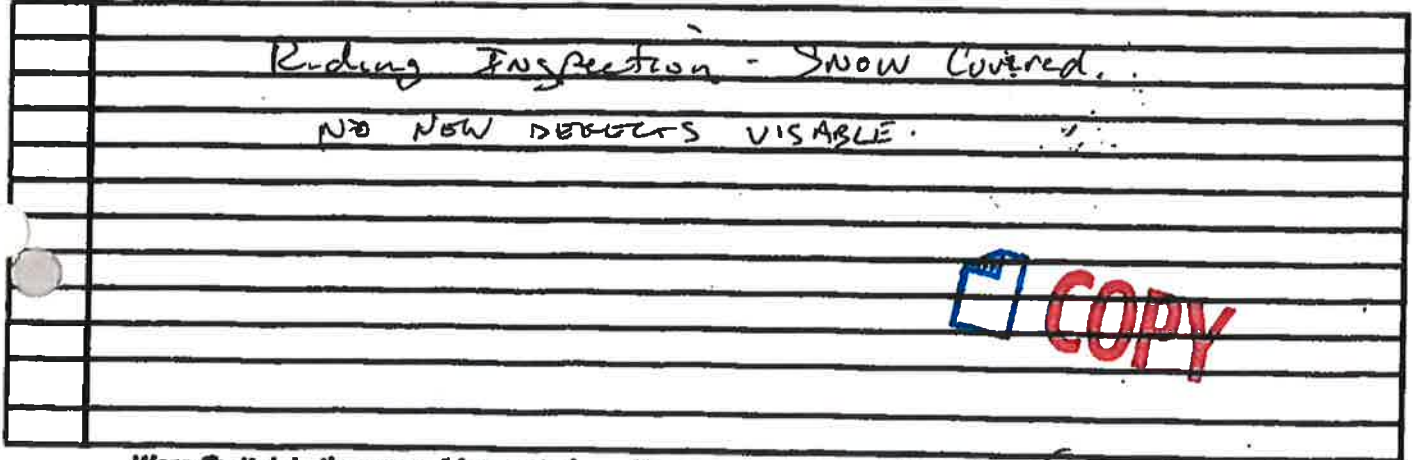 Riding Inspection - Snow Covered.
NO NEW DEFECTS VISABLE.
COPY